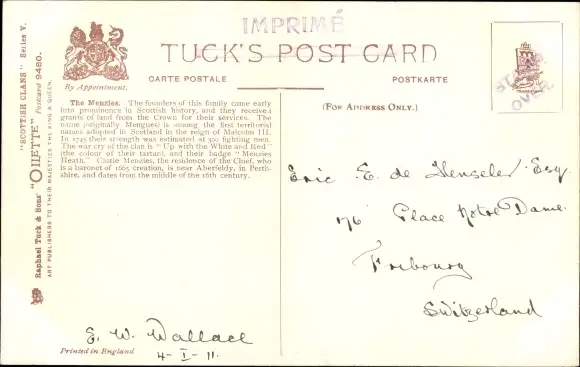 IMPRIMÉ
TUCK'S POST CARD
CARTE POSTALE
POSTKARTE
By Appointment.
(FOR ADDRESS ONLY.)
STAMP
OVER
"SCOTTISH CLANS" Series V.
"OILETTE" Postcard 9480.
Raphael Tuck & Sons'
ART PUBLISHERS TO THEIR MAJESTIES THE KING & QUEEN.
The Menzies. The founders of this family came early
into prominence in Scottish history, and they received
grants of land from the Crown for their services. The
name (originally Mengues) is among the first territorial
names adopted in Scotland in the reign of Malcolm III.
In 1745 their strength was estimated at 300 fighting men.
The war cry of the clan is "Up with the White and Red"
(the colour of their tartan), and their badge "Menzies
Heath." Castle Menzies, the residence of the Chief, who
is a baronet of 1665 creation, is near Aberfeldy, in Perth-
shire, and dates from the middle of the 16th century.
Eric E. de Henseler Esq.
176 Place Notre Dame.
Fribourg
Switzerland
E. W. Wallace
4-I-11.
Printed in England